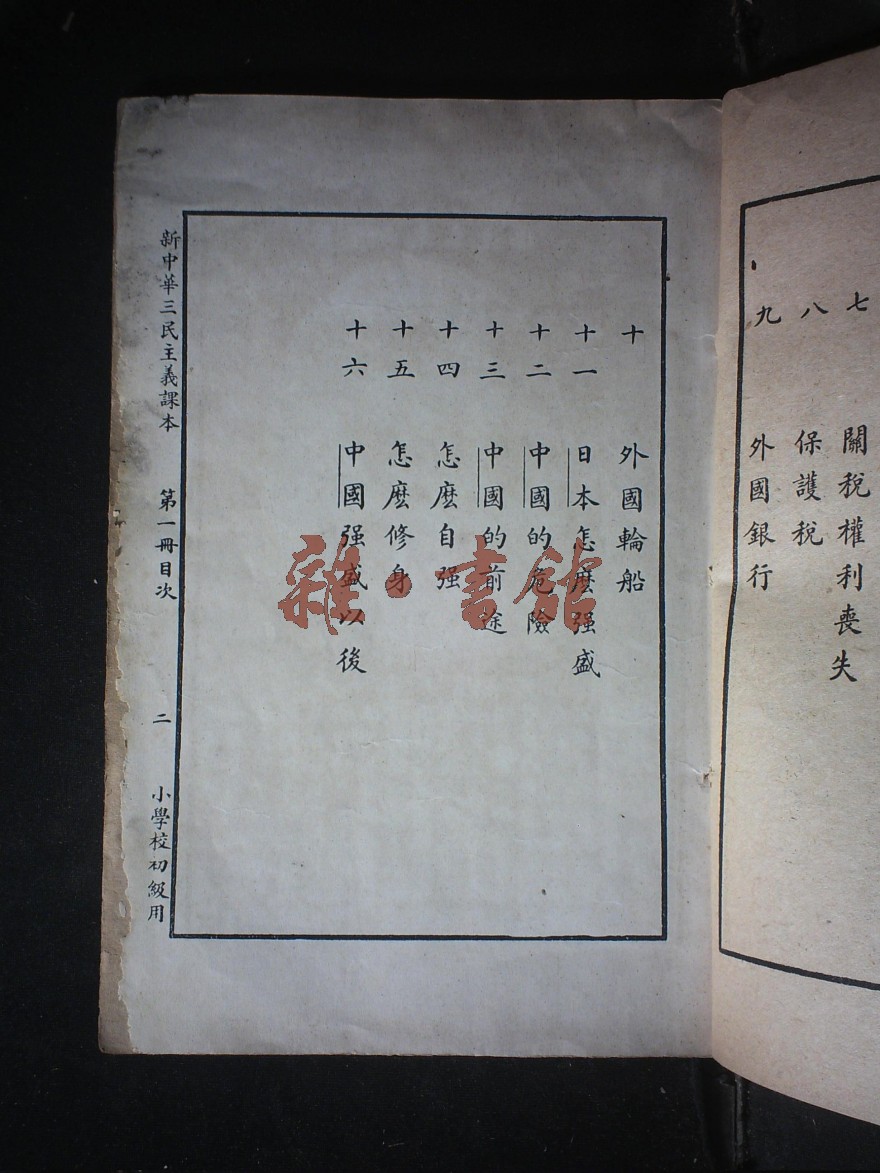 七　關税權利喪失
八　保護税
九　外國銀行
十　外國輪船
十一　日本怎麽强盛
十二　中國的危險
十三　中國的前途
十四　怎麽自强
十五　怎麽修身
十六　中國强盛以後
新中華三民主義課本　第一冊目次　二　小學校初級用
雜·書館